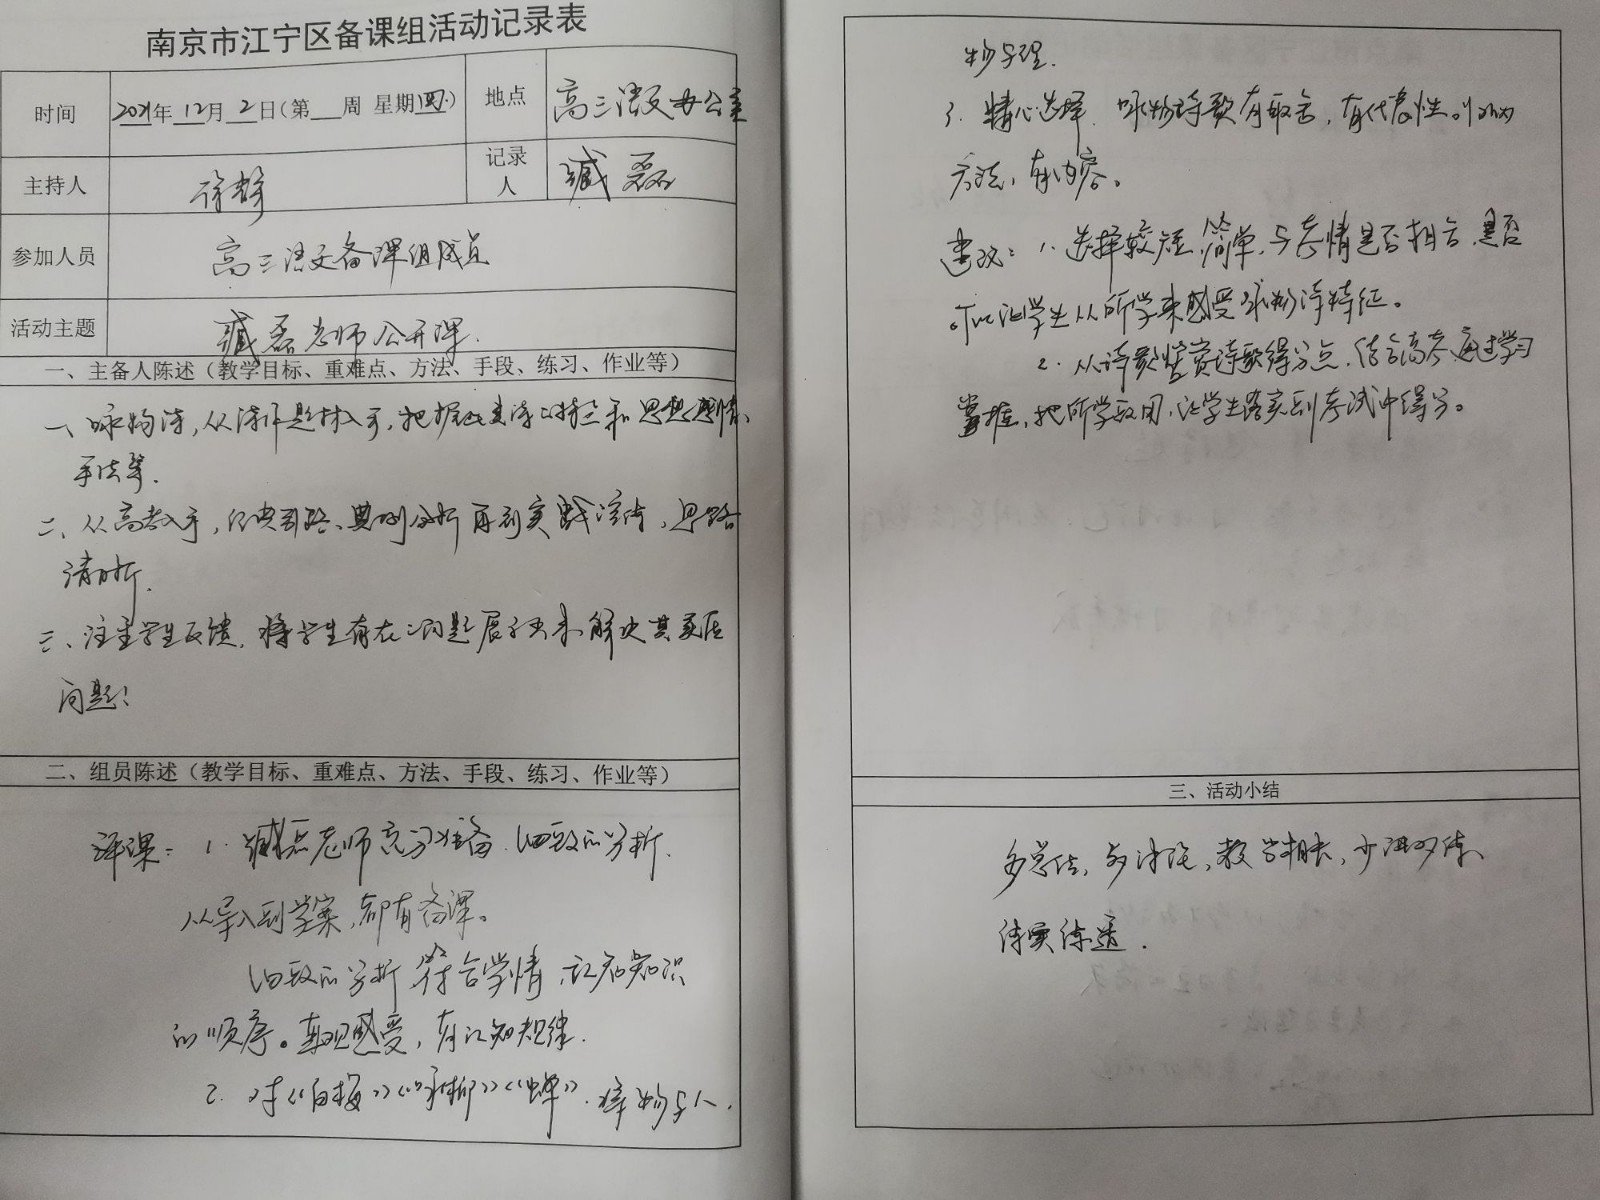 南京市江宁区备课组活动记录表
时间 2021年 12月 2日(第 周 星期四) 地点 高三语文办公室
主持人 徐静 记录人 臧磊
参加人员 高三语文备课组成员
活动主题 臧磊老师公开课.
一、主备人陈述（教学目标、重难点、方法、手段、练习、作业等）
一、咏物诗,从诗作题材入手,把握此类诗的特点和思想感情、
手法等.
二、从高考入手,经典引路、典例分析再到实践演练,思路
清晰.
三、注重学生反馈,将学生存在的问题展示出来,解决其实际
问题!
二、组员陈述（教学目标、重难点、方法、手段、练习、作业等）
评课: 1. 臧磊老师充分准备.细致的分析.
从导入到学案,都有备课。
细致的分析符合学情,认知知识
的顺序。直观感受,有认知规律.
2. 对《白梅》《咏柳》《蝉》. 择物与人.
物与理.
3. 精心选择.咏物诗歌有取舍,有代表性。
方法,有内容。
建议: 1. 选择较短,简单,与表情是否相合,是否
可以让学生从所学来感受咏物诗特征。
2. 从诗歌鉴赏诗歌得分点,结合高考,通过学习
掌握,把所学致用,让学生落实到考试中得分。
三、活动小结
多总结,多讨论,教学相长,少讲多练、
练实练透.